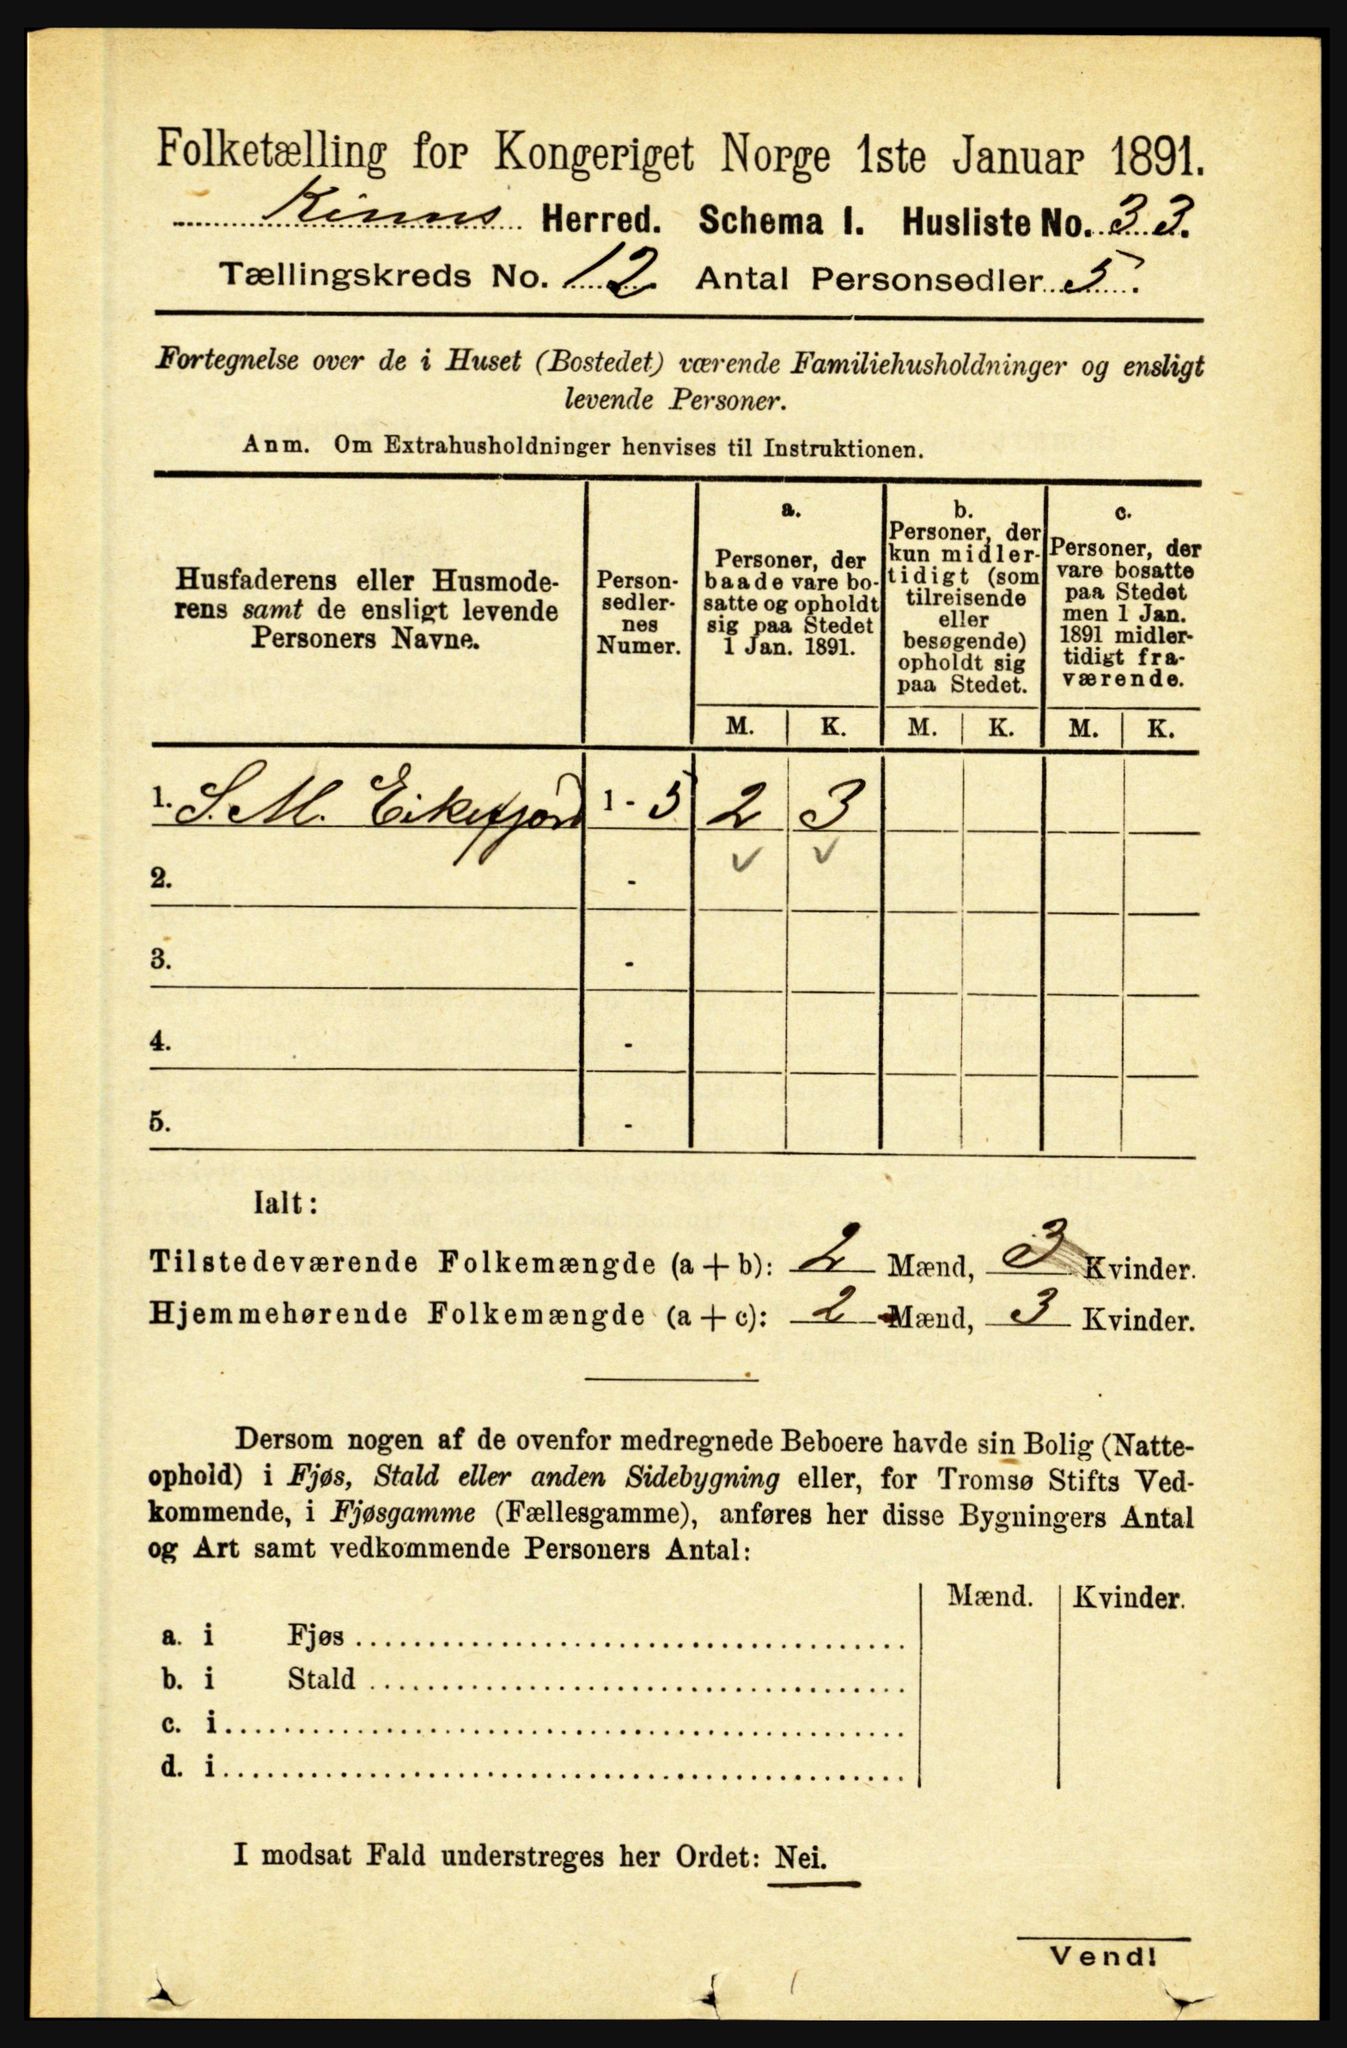 Folketælling for Kongeriget Norge 1ste Januar 1891.
Kinns Herred. Schema I. Husliste No. 33.
Tællingskreds No. 12 Antal Personsedler 5.
Fortegnelse over de i Huset (Bostedet) værende Familiehusholdninger og ensligt
levende Personer.
Anm. Om Extrahusholdninger henvises til Instruktionen.
Husfaderens eller Husmode-
rens samt de ensligt levende
Personers Navne.
Person-
sedler-
nes
Numer.
a.
Personer, der
baade vare bo-
satte og opholdt
sig paa Stedet
1 Jan. 1891.
b.
Personer, der
kun midler-
tidigt (som
tilreisende
eller
besøgende)
opholdt sig
paa Stedet.
c.
Personer, der
vare bosatte
paa Stedet
men 1 Jan.
1891 midler-
tidigt fra-
værende.
M. K. M. K. M. K.
1. S. M. Eikefjord 1 - 5 2 3
2. -
3. -
4. -
5. -
Ialt:
Tilstedeværende Folkemængde (a + b): 2 Mænd, 3 Kvinder.
Hjemmehørende Folkemængde (a + c): 2 Mænd, 3 Kvinder.
Dersom nogen af de ovenfor medregnede Beboere havde sin Bolig (Natte-
ophold) i Fjøs, Stald eller anden Sidebygning eller, for Tromsø Stifts Ved-
kommende, i Fjøsgamme (Fællesgamme), anføres her disse Bygningers Antal
og Art samt vedkommende Personers Antal:
Mænd. Kvinder.
a. i Fjøs
b. i Stald
c. i
d. i
I modsat Fald understreges her Ordet: Nei.
Vend!